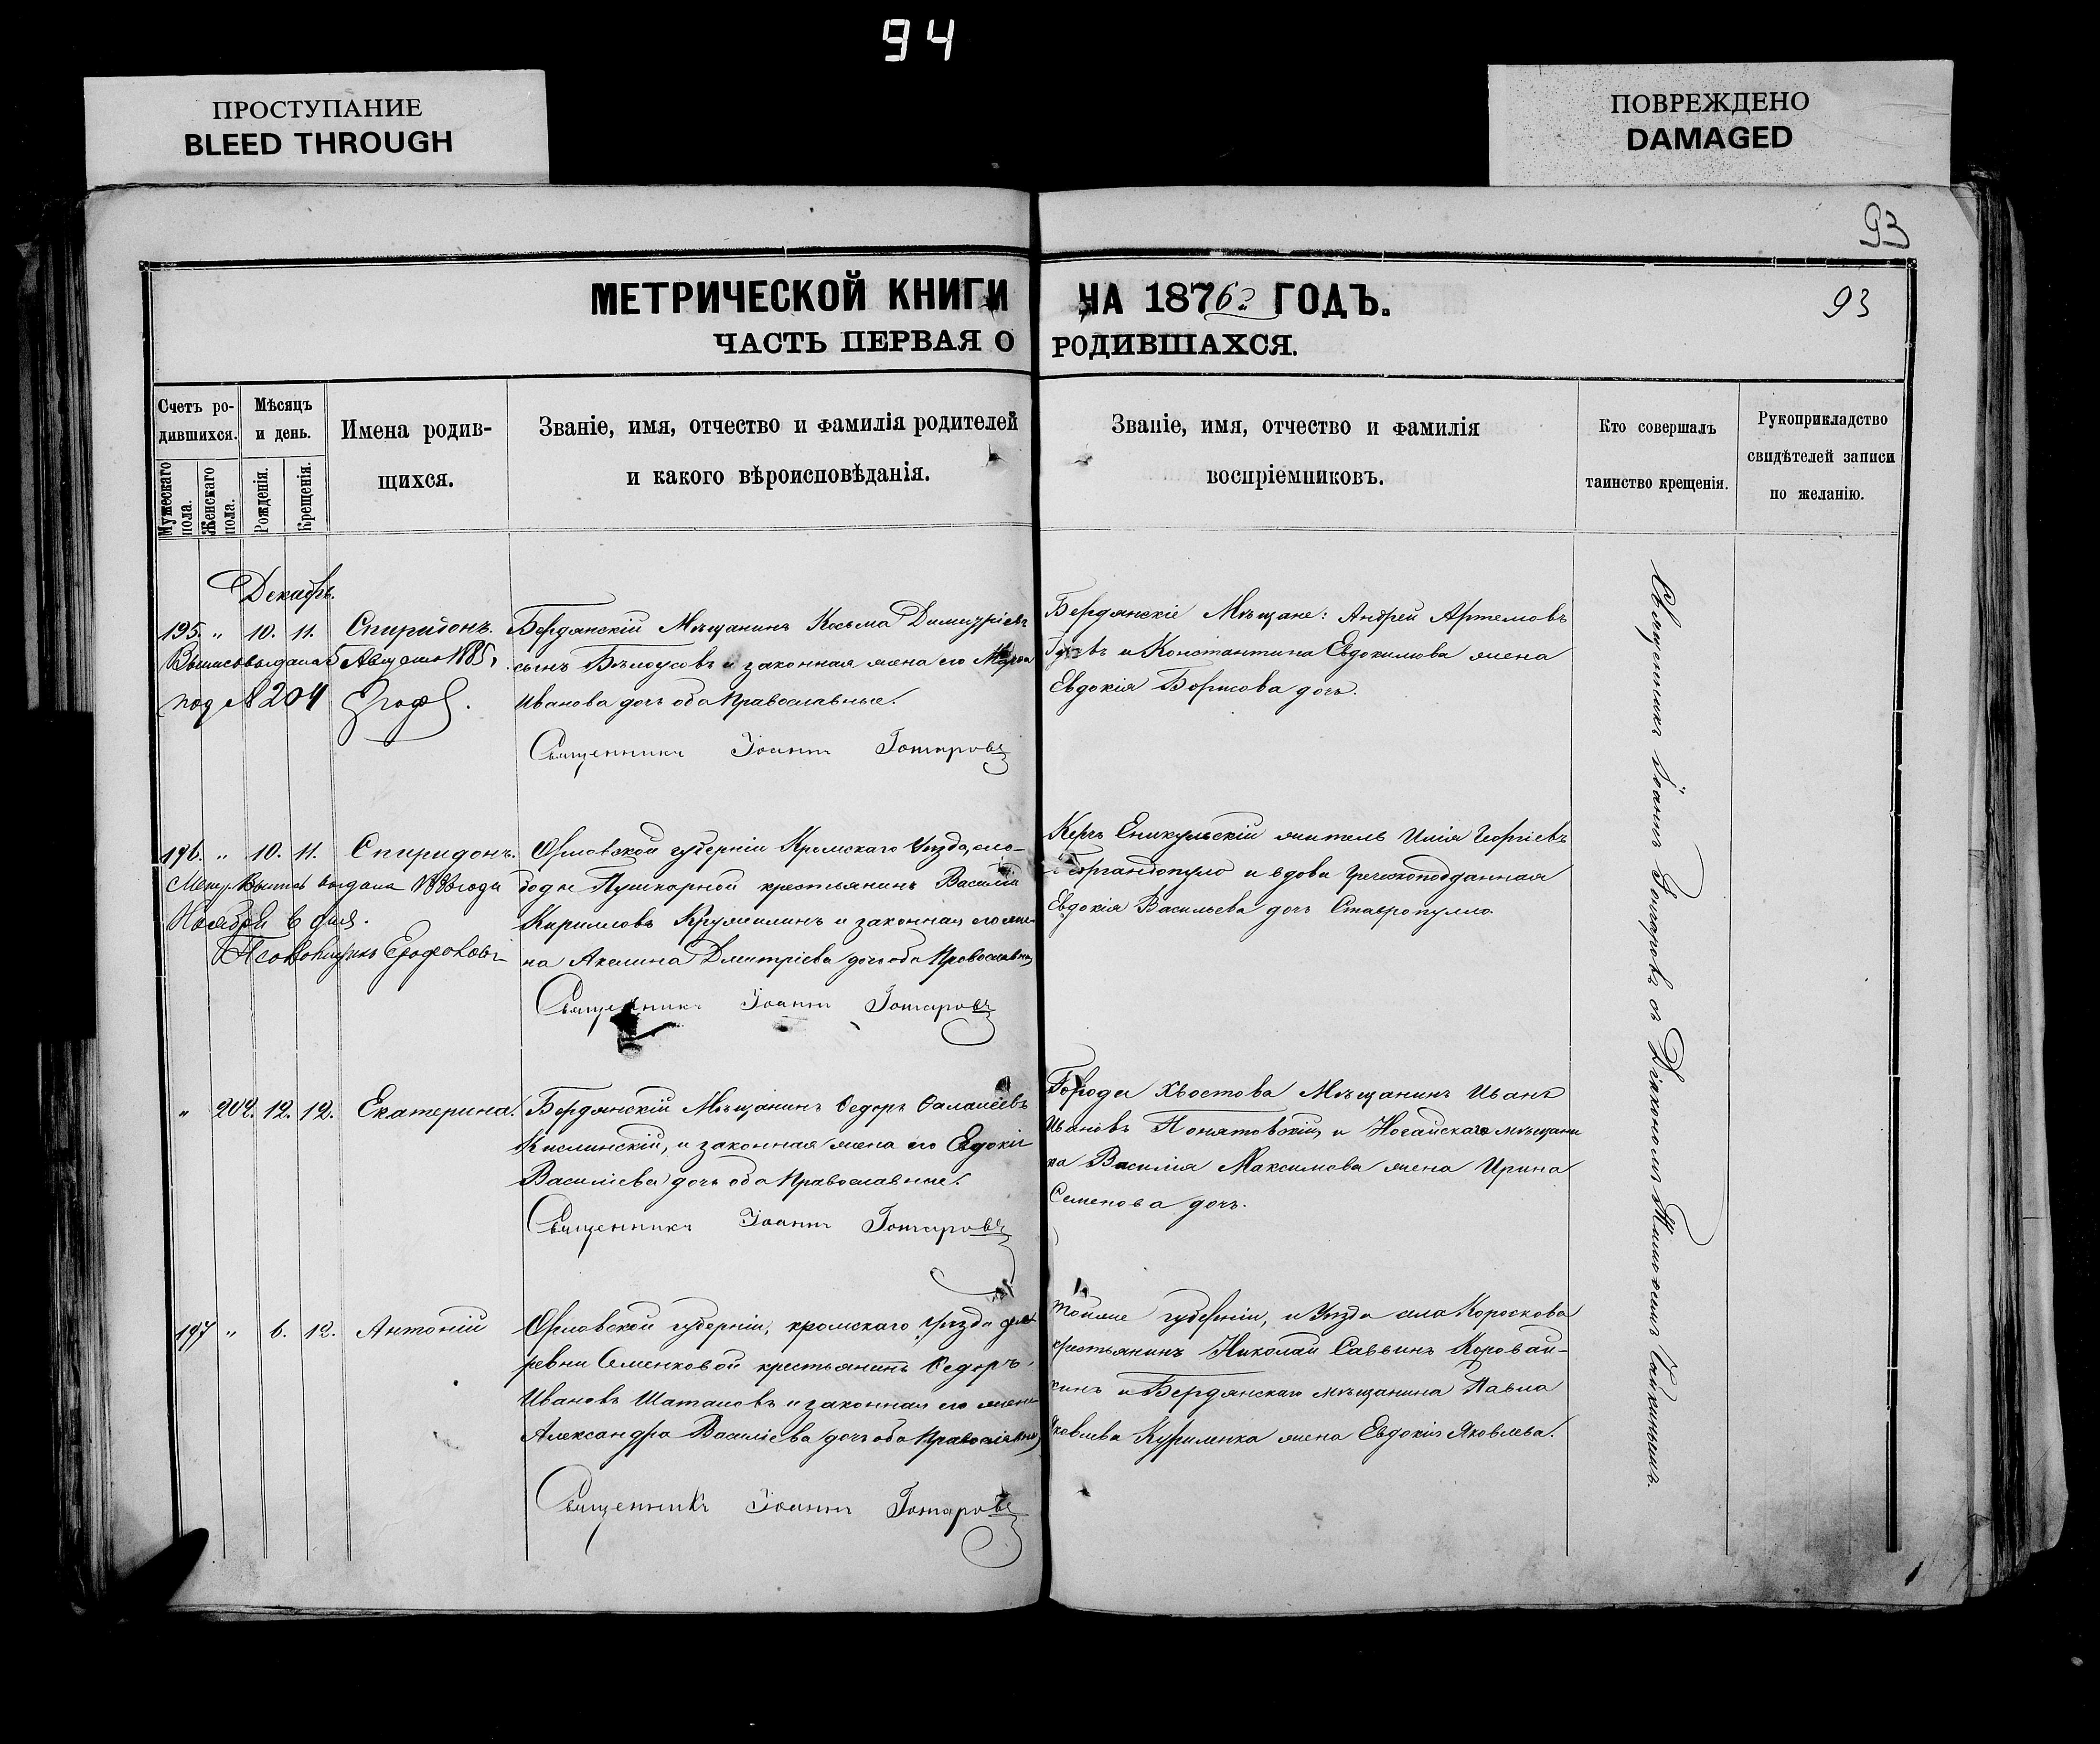 94
ПРОСТУПАНИЕ
BLEED THROUGH
ПОВРЕЖДЕНО
DAMAGED
93
МЕТРИЧЕСКОЙ КНИГИ НА 1876 ГОДЪ.
93
ЧАСТЬ ПЕРВАЯ О РОДИВШАХСЯ.
Счетъ ро-
дившихся.
Мужескаго пола.
Женскаго пола.
Мѣсяцъ
и день.
Рожденія.
Крещенія.
Имена родив-
шихся.
Званіе, имя, отчество и фамилія родителей
и какого вѣроисповѣданія.
Званіе, имя, отчество и фамилія
воспріемниковъ.
Кто совершалъ
таинство крещенія.
Рукоприкладство
свидѣтелей записи
по желанію.
Декабрь.
195. " 10. 11. Спиридонъ.
под № 204
Бердянскій Мѣщанинъ Косьма Димитріевъ
сынъ Бѣлоусовъ и законная жена его
Иванова дочь оба Православные.
Священникъ Іоаннъ Гончаровъ
Бердянскіе Мѣщане: Андрей Артемовъ
и Константина Евдокимова жена
Евдокія Борисова дочь.
196. " 10. 11. Спиридонъ.
выдана года
Ноября 6 дня.
Орловской губерніи Кромскаго Уѣзда, сло-
боды Пушкарной крестьянинъ Василій
Кириловъ и законная его же-
на Акелина Дмитріева дочь оба Православны
Священникъ Іоаннъ Гончаровъ
Керчь Еникульскій житель Илія Георгіевъ
и вдова Греческоподданная
Евдокія Васильева дочь Ставропулло.
" 202. 12. 12. Екатерина.
Бердянскій Мѣщанинъ Федоръ
Кислинскій, и законная жена его Евдокія
Василіева дочь оба Православные.
Священникъ Іоаннъ Гончаровъ
Города Хвостова Мѣщанинъ Иванъ
Ивановъ Понятовскій, и Ногайскаго мѣщани
на Василія Максимова жена Ирина
Семенова дочь.
197 " 6. 12. Антоній
Орловской губерніи, кромскаго Уѣзда де
ревни Семенковой крестьянинъ Федоръ
Ивановъ Шаталовъ и законная его жена
Александра Василіева дочь оба Православны
Священникъ Іоаннъ Гончаровъ
Тойже губерніи, и Уѣзда села Короскова
крестьянинъ Николай Саввинъ Коровай-
кинъ и Бердянскаго мѣщанина Павла
Яковлева Куриленка жена Евдокія Яковлева.
Священникъ Іоаннъ Гончаровъ съ Діакономъ